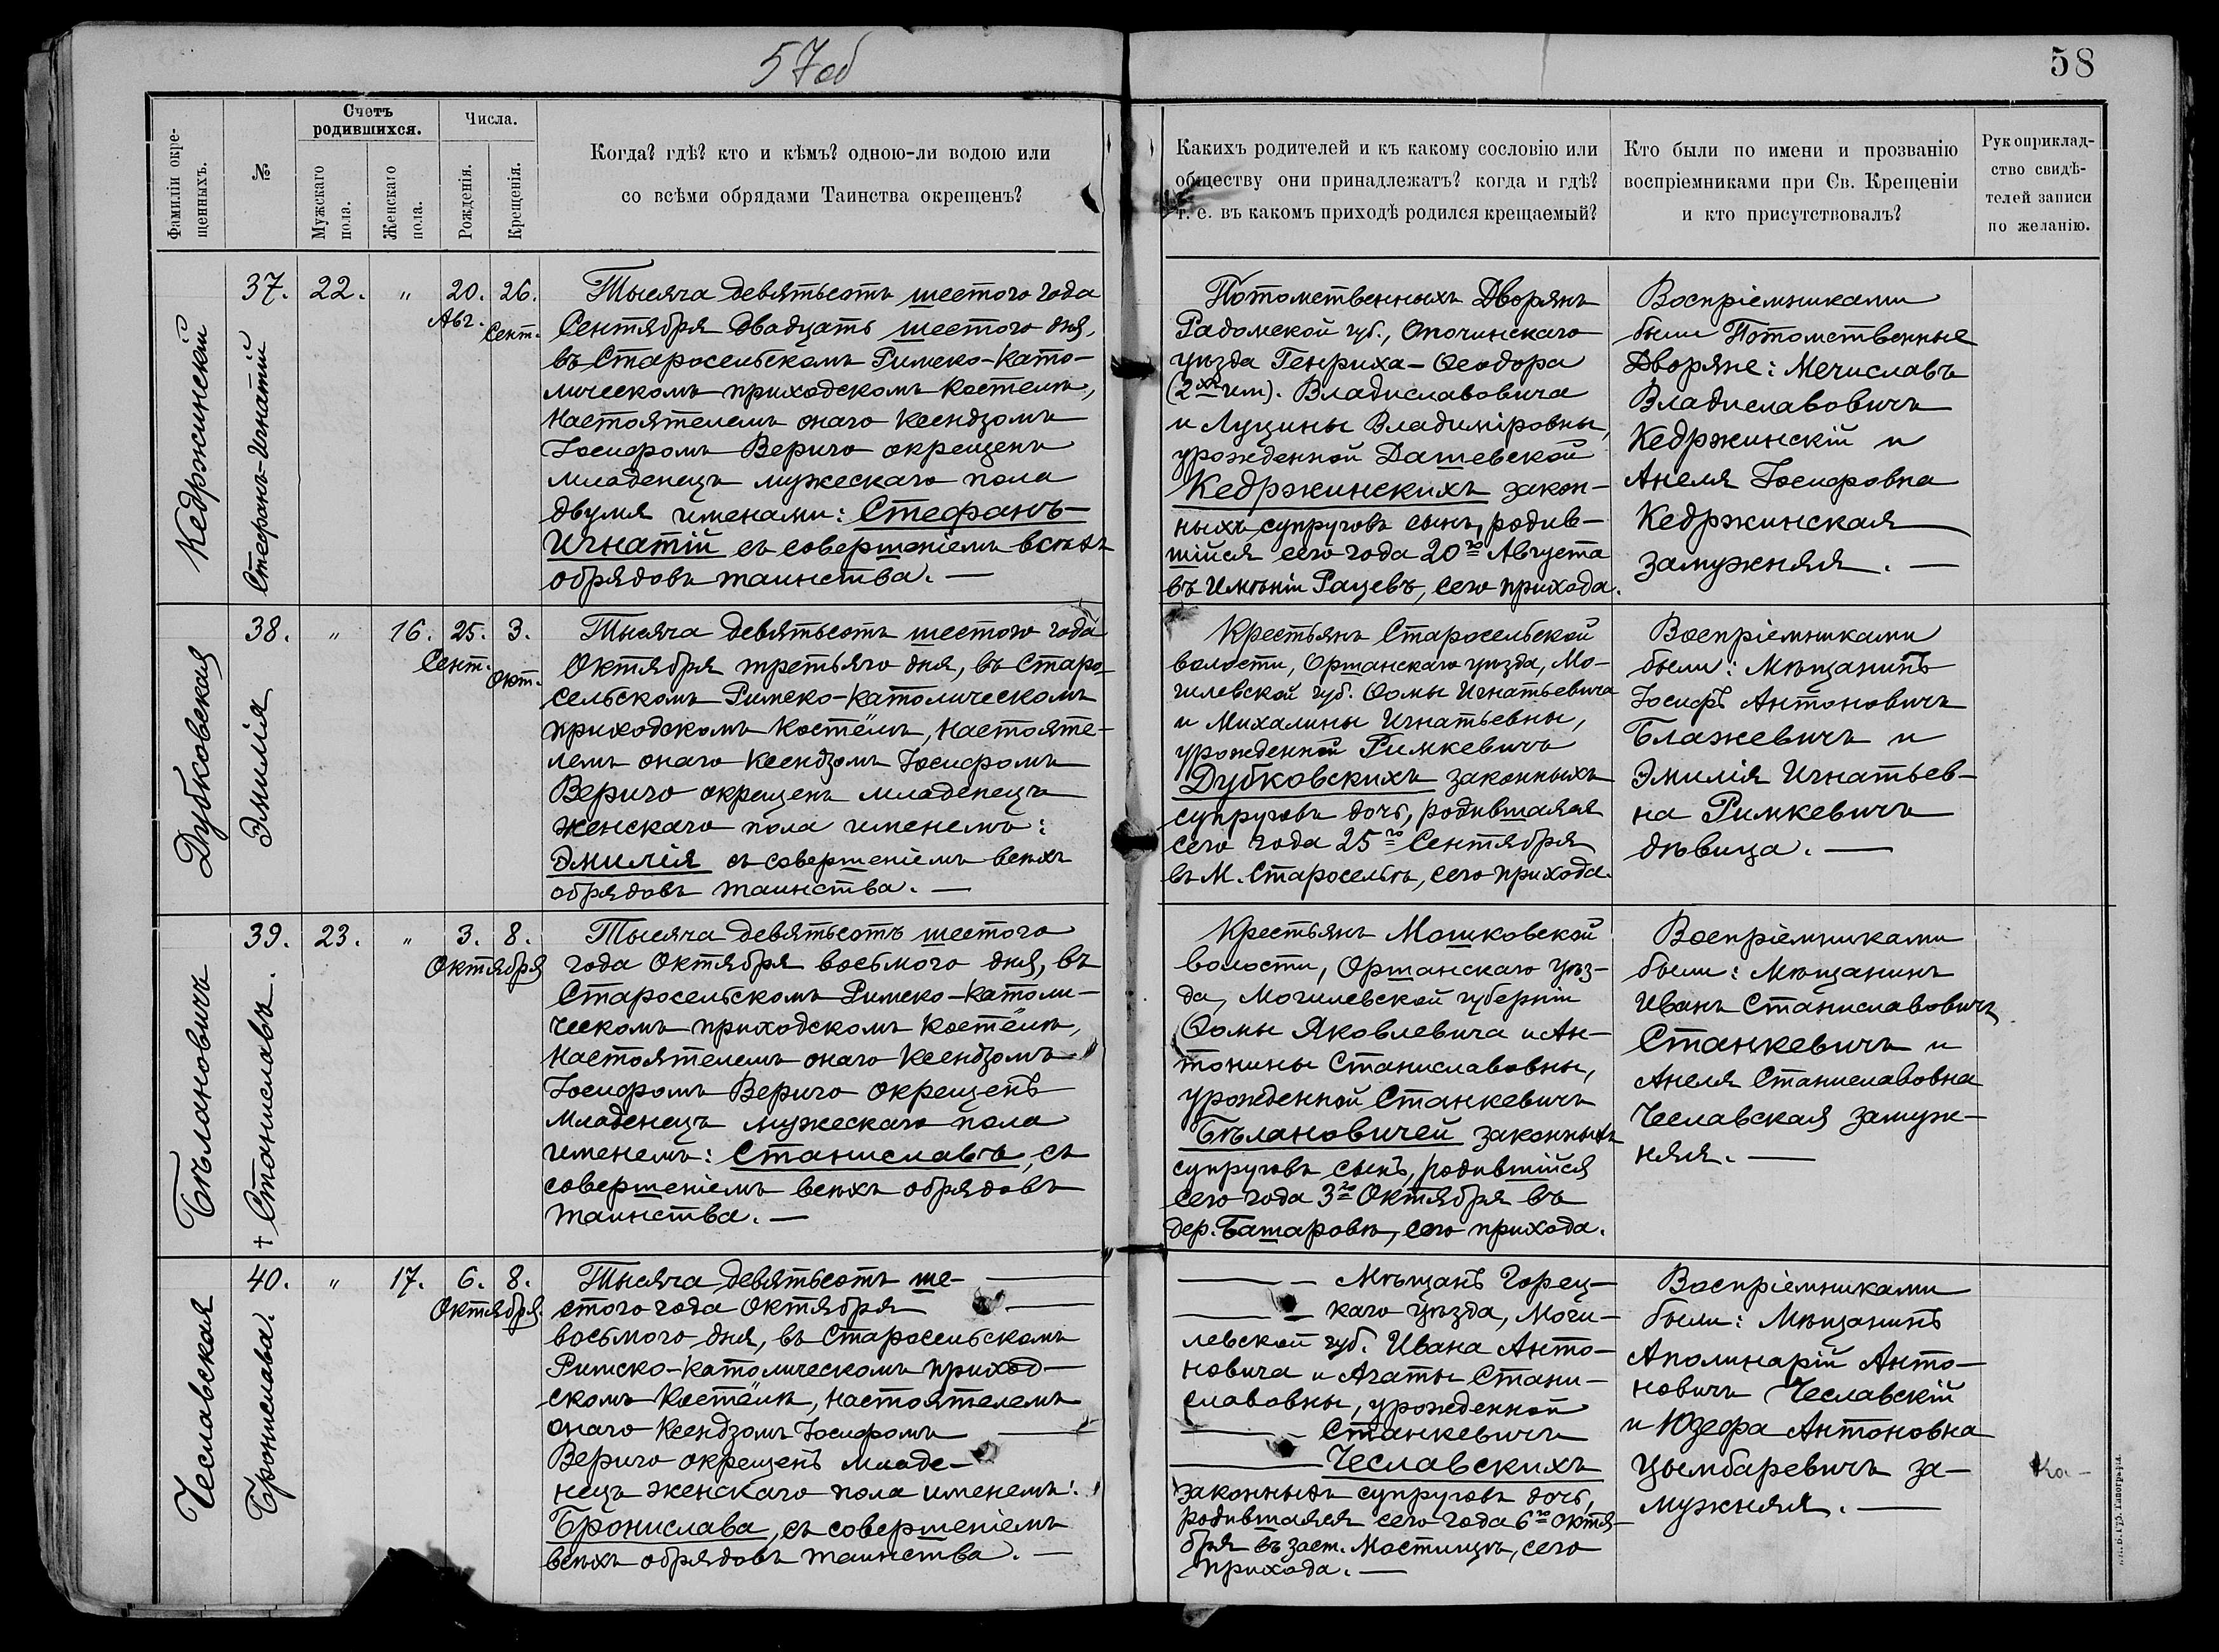 57об
58
Фамиліи окре-
щенныхъ.
№
Счетъ
родившихся.
Мужскаго
пола.
Женскаго
пола.
Числа.
Рожденія.
Крещенія.
Когда? гдѣ? кто и кѣмъ? одною-ли водою или
со всѣми обрядами Таинства окрещенъ?
Какихъ родителей и къ какому сословію или
обществу они принадлежатъ? когда и гдѣ?
т. е. въ какомъ приходѣ родился крещаемый?
Кто были по имени и прозванію
воспріемниками при Св. Крещеніи
и кто присутствовалъ?
Рукоприклад-
ство свидѣ-
телей записи
по желанію.
Кедржинскій
Стефанъ-Игнатій
37. 22. " 20. 26.
Авг. Сент.
Тысяча девятьсотъ шестого года
Сентября двадцать шестого дня,
въ Старосельскомъ Римско-Като-
лическомъ приходскомъ костелѣ,
Настоятелемъ онаго Ксендзомъ
Іосифомъ Верыго окрещенъ
младенецъ мужескаго пола
двумя именами: Стефанъ-
Игнатій съ совершеніемъ всѣхъ
обрядовъ таинства. —
Потомственныхъ Дворянъ
Радомской губ., Опочинскаго
уѣзда Генриха-Ѳеодора
(2хъ им). Владиславовича
и Луцины Владиміровны,
урожденной Дашевской
Кедржинскихъ закон-
ныхъ супруговъ сынъ, родив-
шійся сего года 20го Августа
въ Имѣніи Рацевъ, сего прихода.
Воспріемниками
были Потомственные
Дворяне: Мечиславъ
Владиславовичъ
Кедржинскій и
Анеля Іосифовна
Кедржинская
замужняя. —
Дубковская
Эмилія
38. " 16. 25. 3.
Сент. Окт.
Тысяча девятьсотъ шестого года
Октября третьяго дня, въ Старо-
сельскомъ Римско-Католическомъ
приходскомъ Костёлѣ, Настояте-
лемъ онаго Ксендзомъ Іосифомъ
Верыго окрещенъ младенецъ
женскаго пола именемъ:
Эмилія съ совершеніемъ всѣхъ
обрядовъ таинства. —
Крестьянъ Старосельской
волости, Оршанскаго уѣзда, Мо-
гилевской губ. Ѳомы Игнатьевича
и Михалины Игнатьевны,
урожденной Римкевичъ
Дубковскихъ законныхъ
супруговъ дочь, родившаяся
сего года 25го Сентября
въ М. Старосельѣ, сего прихода.
Воспріемниками
были: Мѣщанинъ
Іосифъ Антоновичъ
Блажевичъ и
Эмилія Игнатьев-
на Римкевичъ
дѣвица. —
Бѣлановичъ
† Станиславъ.
39. 23. " 3. 8.
Октября
Тысяча девятьсотъ шестого
года Октября восьмого дня, въ
Старосельскомъ Римско-Католи-
ческомъ приходскомъ Костёлѣ,
Настоятелемъ онаго Ксендзомъ
Іосифомъ Верыго окрещенъ
Младенецъ мужескаго пола
именемъ: Станиславъ, съ
совершеніемъ всѣхъ обрядовъ
таинства. —
Крестьянъ Мошковской
волости, Оршанскаго уѣз-
да, Могилевской губерніи
Ѳомы Яковлевича и Ан-
тонины Станиславовны,
урожденной Станкевичъ
Бѣлановичей законныхъ
супруговъ сынъ, родившійся
сего года 3го Октября въ
дер. Башаровѣ, сего прихода.
Воспріемниками
были: Мѣщанинъ
Иванъ Станиславовичъ
Станкевичъ и
Анеля Станиславовна
Чеславская замуж-
няя. —
Чеславская
Бронислава.
40. " 17. 6. 8.
Октября.
Тысяча девятьсотъ ше-
стого года Октября
восьмого дня, въ Старосельскомъ
Римско-Католическомъ приход-
скомъ Костёлѣ, Настоятелемъ
онаго Ксендзомъ Іосифомъ
Верыго окрещенъ Младе-
нецъ женскаго пола именемъ:
Бронислава, съ совершеніемъ
всѣхъ обрядовъ таинства. —
Мѣщанъ Горец-
каго уѣзда, Моги-
левской губ. Ивана Анто-
новича и Агаты Стани-
славовны, урожденной
Станкевичъ
Чеславскихъ
законныхъ супруговъ дочь,
родившаяся сего года 6го Октя-
бря въ заст. Мостищѣ, сего
прихода. —
Воспріемниками
были: Мѣщанинъ
Аполинарій Анто-
новичъ Чеславскій
и Юзефа Антоновна
Цымбаревичъ за-
мужняя. —